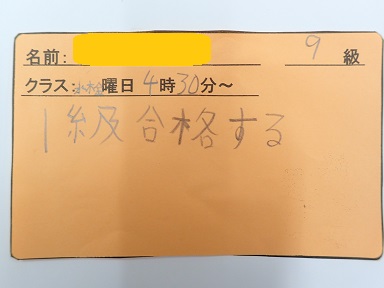 名前: 9 級
クラス:水木金曜日4時30分～
1級合格する